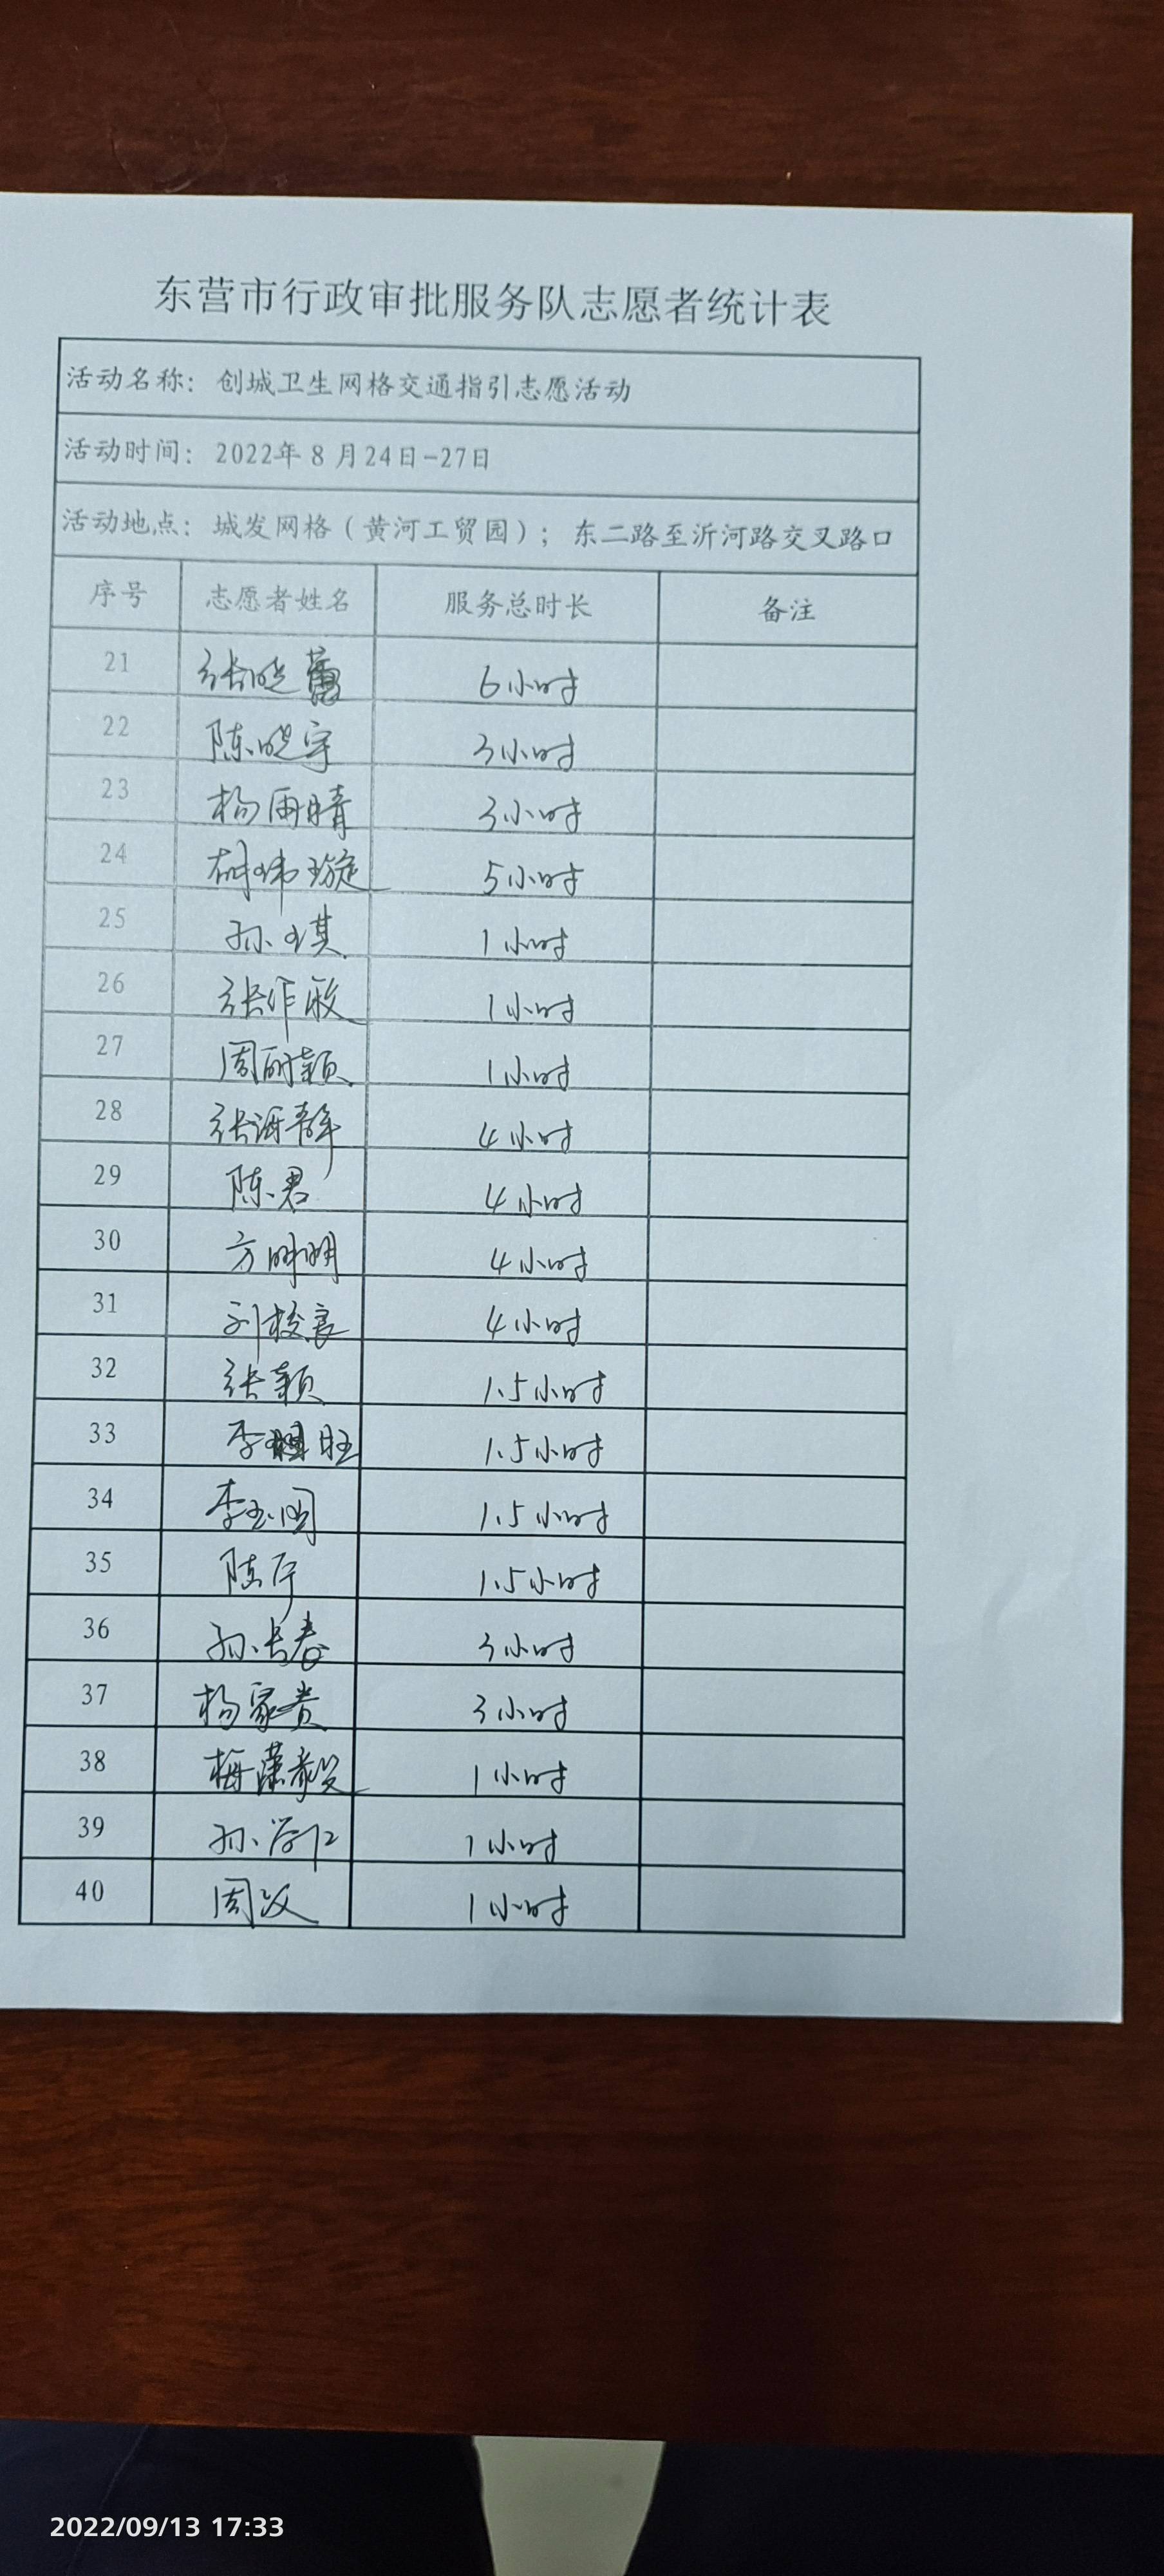 东营市行政审批服务队志愿者统计表
活动名称：创城卫生网格交通指引志愿活动
活动时间：2022年8月24日-27日
活动地点：城发网格（黄河工贸园）；东二路至沂河路交叉路口
序号 志愿者姓名 服务总时长 备注
21 张晓蕾 6小时
22 陈晓宇 3小时
23 杨雨晴 3小时
24 胡炜璇 5小时
25 孙琪 1小时
26 张作敏 1小时
27 周丽颖 1小时
28 张海静 4小时
29 陈君 4小时
30 方明明 4小时
31 刘校良 4小时
32 张颖 1.5小时
33 1.5小时
34 李玉国 1.5小时
35 1.5小时
36 孙长春 3小时
37 杨家贵 3小时
38 梅潇毅 1小时
39 孙学仁 1小时
40 周汉 1小时
2022/09/13 17:33